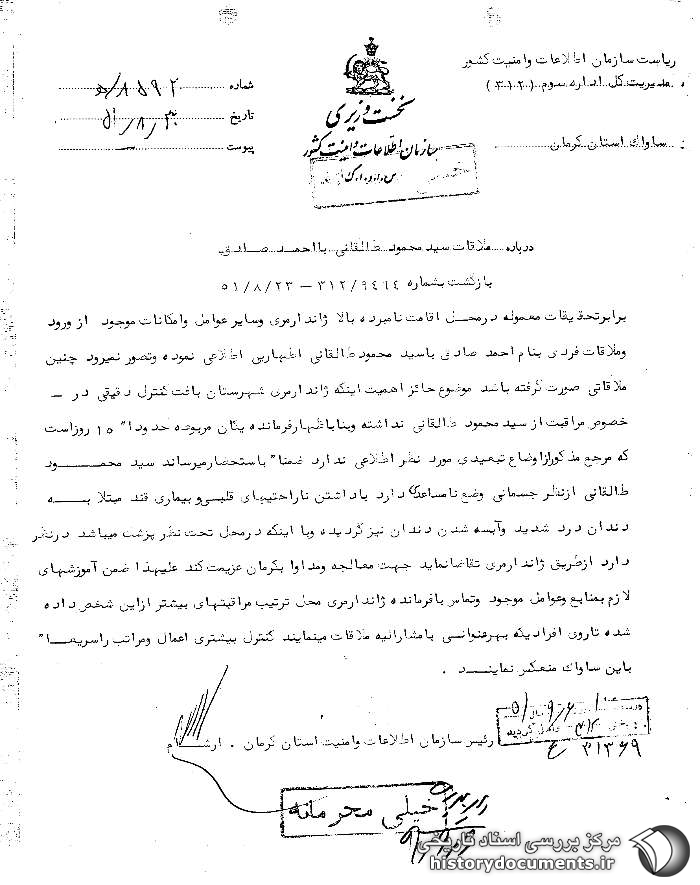 ریاست سازمان اطلاعات وامنیت کشور
مدیریت کل اداره سوم (۳۱۲)
ساواك استان کرمان
نخست وزیری
سازمان اطلاعات و امنیت کشور
شماره ۸۵۹۲/ه
تاریخ ۵۱/۸/۳۰
پیوست
درباره ملاقات سید محمود طالقانی با احمد صادق
بازگشت بشماره ۳۱۲/۹۴۶۴ – ۵۱/۸/۲۳
برابرتحقیقات معموله درمحل اقامت نامبرده بالا ژاندارمری وسایر عوامل وامکانات موجود از ورود
وملاقات فردی بنام احمد صادق باسید محمود طالقانی اظهاربی اطلاعی نموده وتصور نمیرود چنین
ملاقاتی صورت گرفته باشد موضوع حائز اهمیت اینکه ژاندارمری شهرستان بافت کنترل دقیقی در –
خصوص مراقبت از سید محمود طالقانی نداشته وبنا باظهار فرمانده یگان مربوطه حدودا" ۱۵ روزاست
که مرجع مذکورازاوضاع تبعیدی مورد نظر اطلاعی ندارد ضمنا" باستحضار میرساند سید محمود
طالقانی ازنظر جسمانی وضع نامساعدی دارد باداشتن ناراحتیهای قلبی وبیماری قند مبتلا به
دندان درد شدید وآبسه شدن دندان نیز گردیده وبا اینکه درمحل تحت نظر پزشك میباشد درنظر
دارد ازطریق ژاندارمری تقاضانماید جهت معالجه ومداوا بکرمان عزیمت کند علیهذا ضمن آموزشهای
لازم بمنابع وعوامل موجود وتماس بافرمانده ژاندارمری محل ترتیب مراقبتهای بیشتر ازاین شخص داده
شده تاروی افرادیکه بهرعنوانی بامشارالیه ملاقات مینمایند کنترل بیشتری اعمال ومراتب راسریعا"
باین ساواك منعکس نمایند .
رئیس سازمان اطلاعات وامنیت استان کرمان . ارشام
۳۱۳۶۹
خیلی محرمانه
مرکز بررسی اسناد تاریخی
historydocuments.ir